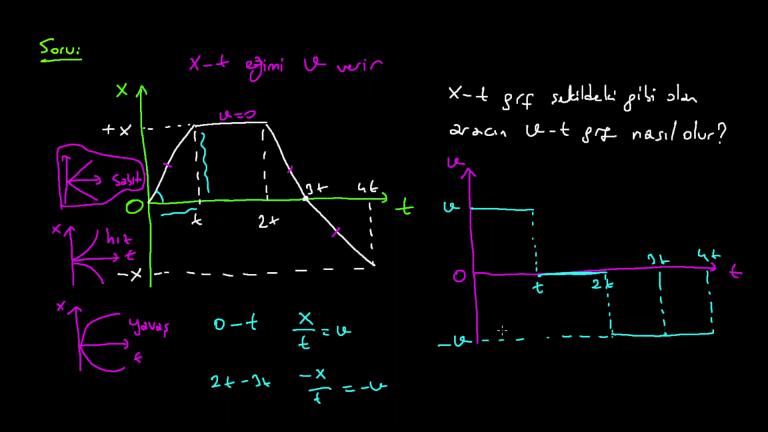 Soru:
X-t eğimi v verir
X-t grf şekildeki gibi olan
aracın v-t grf nasıl olur?
x
+x
v=0
0
t
2t
3t
4t
t
-x
sabit
x
hız
t
x
yavaş
t
0-t x/t = v
2t-3t -x/t = -v
v
v
0
t
2t
3t
4t
t
-v